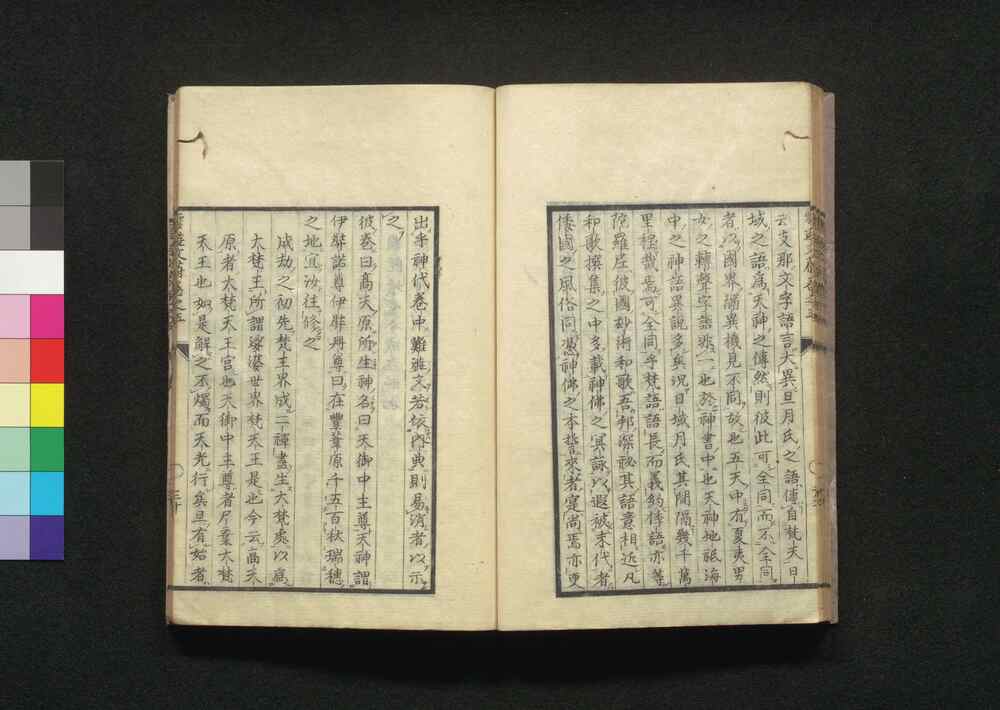 云支那文字語言大異旦月氏之語傳自梵天日
域之語爲天神之傳然則彼此可全同而不全同
者以國界隔異機見不同故也五天中有夏夷男
女之轉聲字語非一也於神書中也天神地祇海
中之神語異說多矣況日域月氏其閒隔幾千萬
里程哉焉可全同乎梵語語長而義約倭語亦等
陀羅尼彼國妙術和歌吾邦深祕其語意相近凡
和歌撰集之中多載神佛之冥詠以遐被末代者
倭國之風俗同憑神佛之本誓來者寔尚焉亦更
出本神代卷中難雜文若依內典則易消者以示
之
彼卷曰高天原所生神名曰天御中主尊天神謂
伊弉諾尊伊弉冉尊曰在豐葦原千五百秋瑞穗
之地宜汝往修之
成劫之初先梵王界成二禪盡生大梵處以爲
大梵王所謂娑婆世界梵天王是也今云高天
原者大梵天王宮也天御中主尊者尸棄大梵
天王也如是解之不燭而天光行矣旦有始者